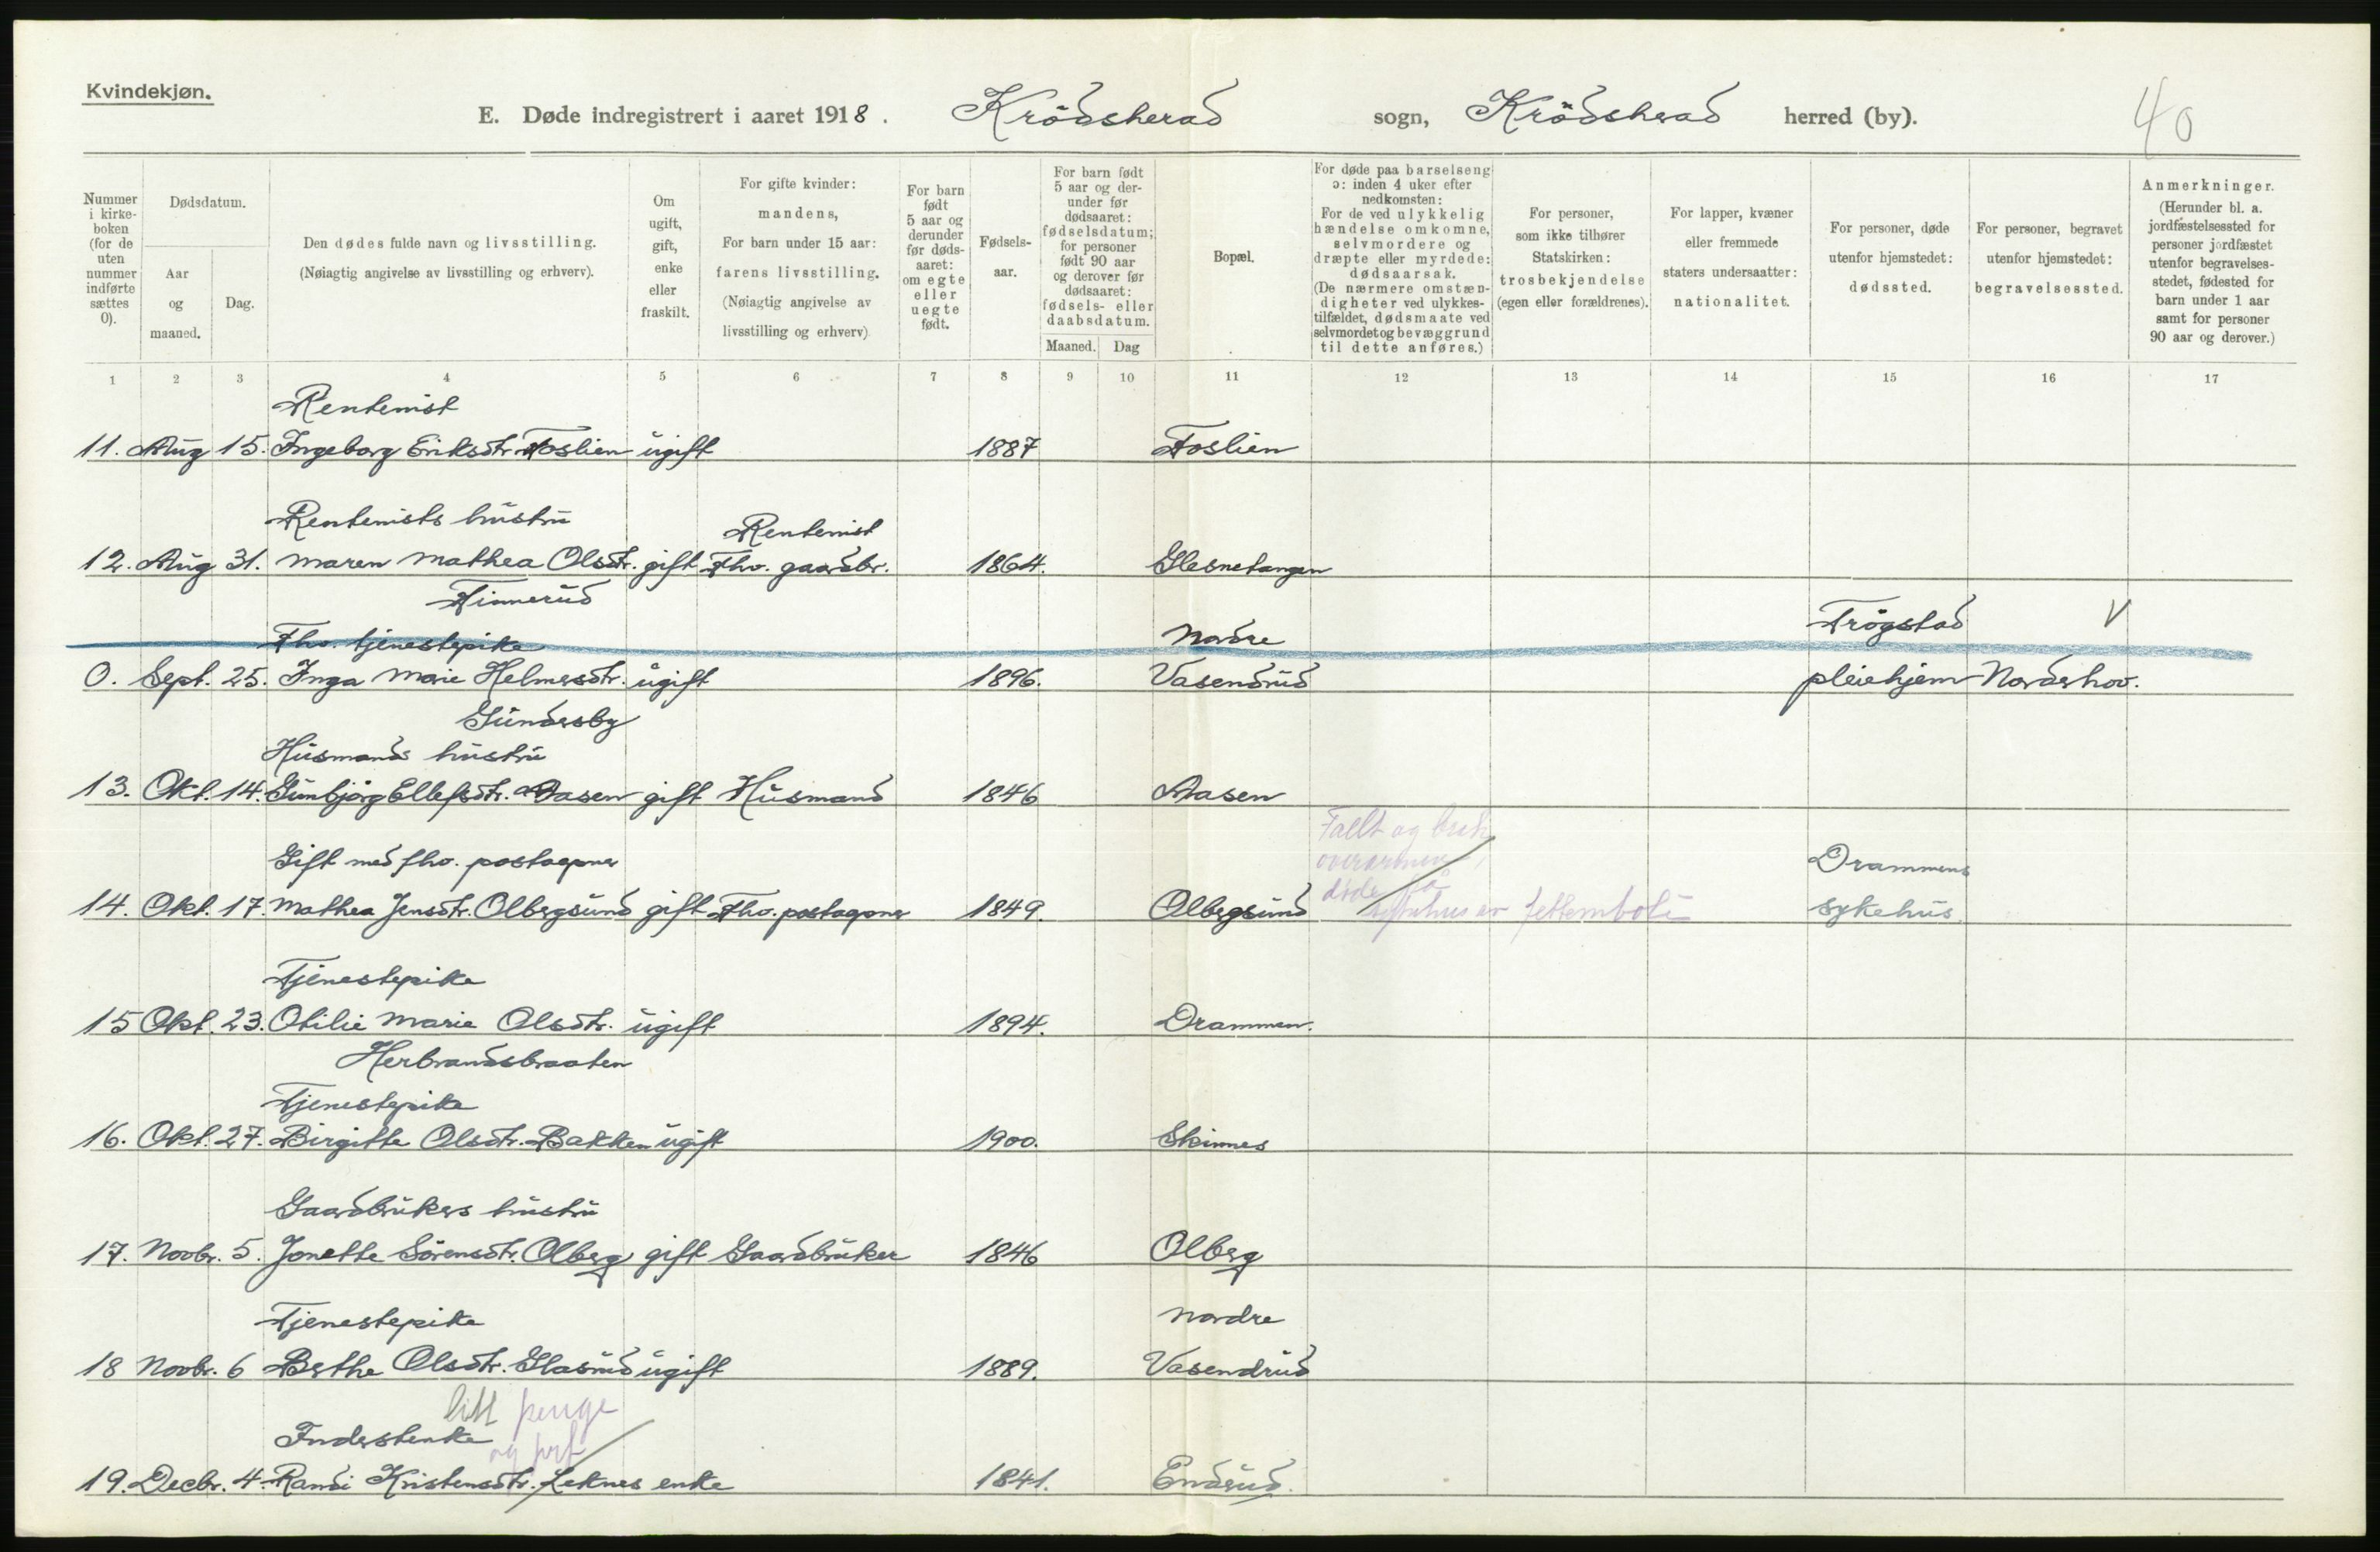 Kvindekjøn.
E. Døde indregistrert i aaret 1918. Krödsherad sogn, Krödsherad herred (by).
40
Nummer i kirkeboken (for de uten nummer indførte sættes 0).
Dødsdatum.
Aar og maaned.
Dag.
Den dødes fulde navn og livsstilling.
(Nøiagtig angivelse av livsstilling og erhverv).
Om ugift, gift, enke eller fraskilt.
For gifte kvinder: mandens,
For barn under 15 aar: farens livsstilling.
(Nøiagtig angivelse av livsstilling og erhverv)
For barn født 5 aar og derunder før dødsaaret: om egte eller uegte født.
Fødselsaar.
For barn født 5 aar og derunder før dødsaaret: fødselsdatum; for personer født 90 aar og derover før dødsaaret: fødsels- eller daabsdatum.
Maaned.
Dag
Bopæl.
For døde paa barselseng ɔ: inden 4 uker efter nedkomsten:
For de ved ulykkelig hændelse omkomne, selvmordere og dræpte eller myrdede: dødsaarsak.
(De nærmere omstændigheter ved ulykkestilfældet, dødsmaate ved selvmordet og bevæggrund til dette anføres.)
For personer, som ikke tilhører Statskirken: trosbekjendelse (egen eller forældrenes).
For lapper, kvæner eller fremmede staters undersaatter: nationalitet.
For personer, døde utenfor hjemstedet: dødssted.
For personer, begravet utenfor hjemstedet: begravelsessted.
Anmerkninger.
(Herunder bl. a. jordfæstelsessted for personer jordfæstet utenfor begravelsesstedet, fødested for barn under 1 aar samt for personer 90 aar og derover.)
1 2 3 4 5 6 7 8 9 10 11 12 13 14 15 16 17
Rentenist
11. Aug 15. Ingeborg Eriksdtr. Foslien ugift 1887 Foslien
Rentenists hustru Rentenist
12. Aug 31. Maren Mathea Olsdtr. gift Fhv. gaardbr. 1864. Glesnetangen
Finnerud
Fhv. tjenestepike Nordre Trögstad V
0. Sept. 25. Inga Marie Helmersdtr. ugift 1896. Vasendrud pleiehjem Norderhov.
Gundersby
Husmands hustru
13. Okt. 14. Gunbjörg Ellefsdtr. Aasen gift Husmand 1846 Aasen
Gift med fhv. postaapner Fallt og brak overarmen, Drammens
14. Okt. 17. Mathea Jensdtr. Olbergsund gift Fhv. postaapner 1849. Olbergsund döde på sykehus av fettemboli sykehus.
Tjenestepike
15 Okt. 23. Otilie Marie Olsdtr. ugift 1894. Drammen.
Herbrandsbraaten
Tjenestepike
16. Okt. 27. Birgitte Olsdtr. Bakken ugift 1900. Skinnes
Gaardbrukers hustru
17. Novbr. 5. Jonette Sörensdtr. Olberg gift Gaardbruker 1846 Olberg
Tjenestepike Nordre
18 Novbr. 6 Berthe Olsdtr. Glasrud ugift 1889. Vasendrud
litt penge
Inderstenke og
19. Decbr. 4. Randi Kristensdtr. Leknes enke 1841. Endrud.